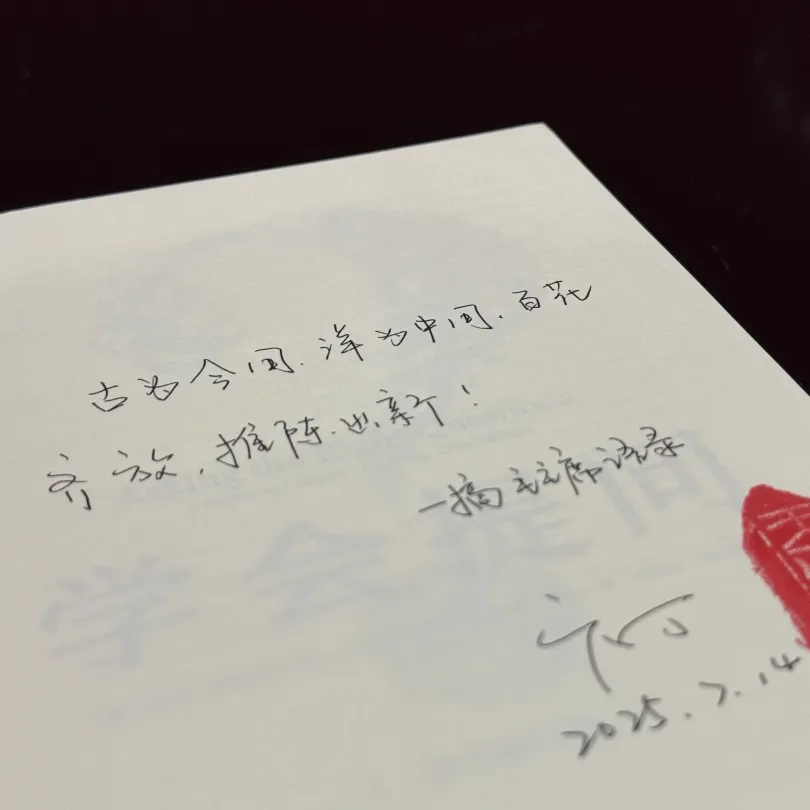 古为今用.洋为中用.百花
齐放.推陈出新!
—摘毛主席语录
2025.7.14
学会提问